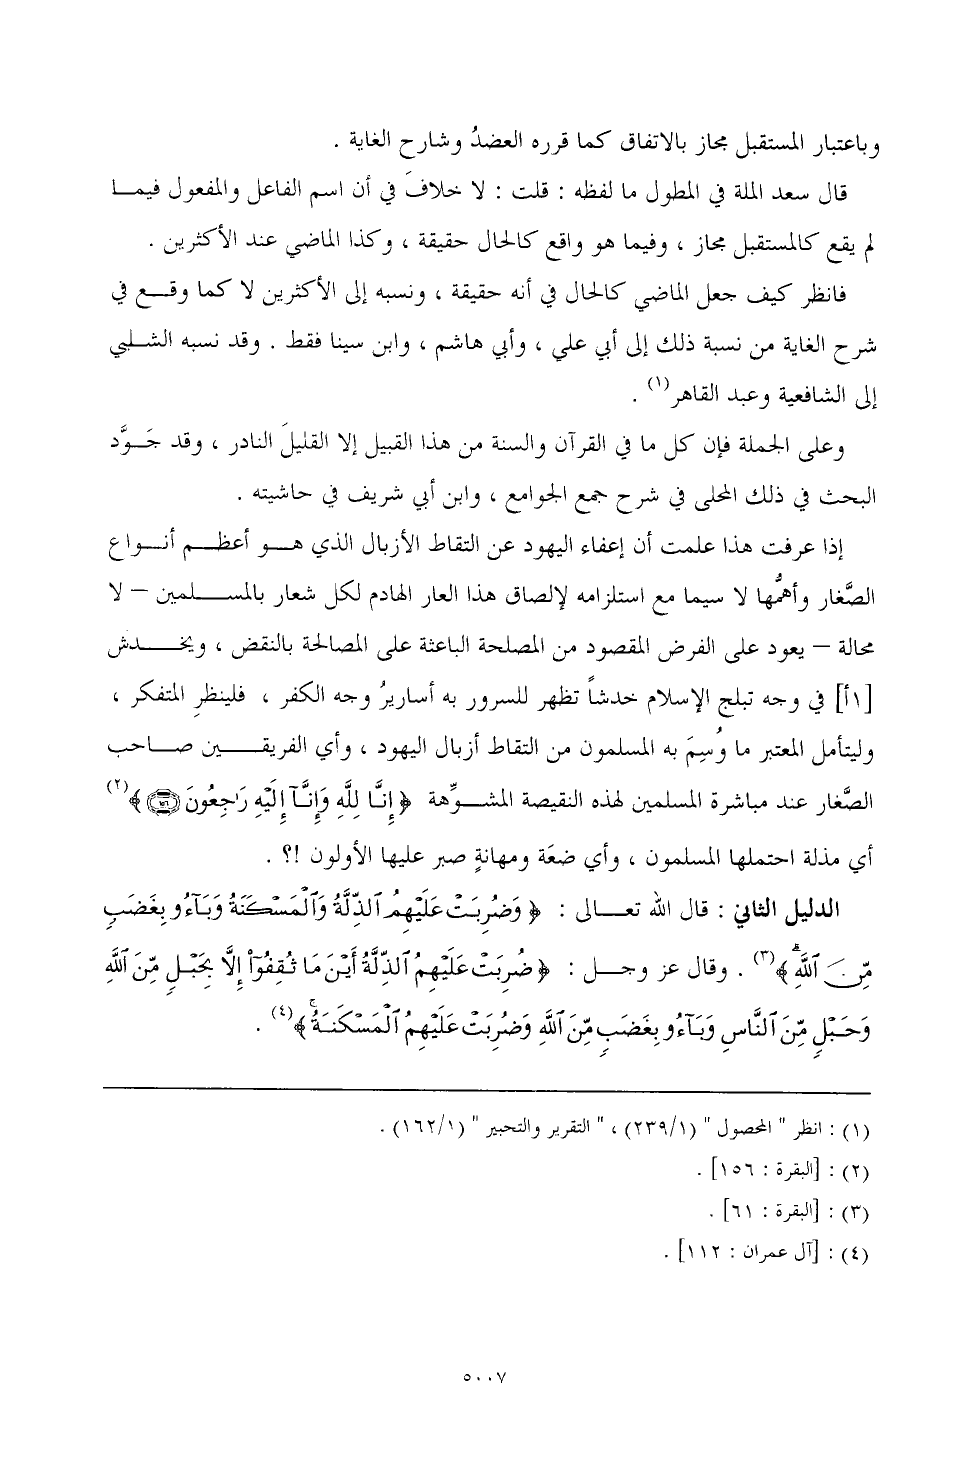 وباعتبار المستقبل مجاز بالاتفاق كما قرره العضدُ وشارح الغاية .
قال سعد الملة في المطول ما لفظه : قلت : لا خلافَ في أن اسم الفاعل والمفعول فيمـــا
لم يقع كالمستقبل مجاز ، وفيما هو واقع كالحال حقيقة ، وكذا الماضي عند الأكثرين .
فانظر كيف جعل الماضي كالحال في أنه حقيقة ، ونسبه إلى الأكثرين لا كما وقـــع في
شرح الغاية من نسبة ذلك إلى أبي علي ، وأبي هاشم ، وابن سينا فقط . وقد نسبه الشـلبي
إلى الشافعية وعبد القاهر(١) .
وعلى الجملة فإن كل ما في القرآن والسنة من هذا القبيل إلا القليلَ النادر ، وقد جَـــوَّد
البحث في ذلك المحلى في شرح جمع الجوامع ، وابن أبي شريف في حاشيته .
إذا عرفت هذا علمت أن إعفاء اليهود عن التقاط الأزبال الذي هـــو أعظـــم أنـــواع
الصَّغار وأهمُّها لا سيما مع استلزامه لإلصاق هذا العار الهادم لكل شعار بالمســـلمين – لا
محالة – يعود على الفرض المقصود من المصلحة الباعثة على المصالحة بالنقض ، ويخـــدش
[١أ] في وجه تبلج الإسلام خدشاً تظهر للسرور به أساريرُ وجه الكفر ، فلينظرِ المتفكر ،
وليتأمل المعتبر ما وُسِمَ به المسلمون من التقاط أزبال اليهود ، وأي الفريقـــين صـــاحب
الصَّغار عند مباشرة المسلمين لهذه النقيصة المشـــوِّهة ﴿ إِنَّا لِلَّهِ وَإِنَّآ إِلَيْهِ رَاجِعُونَ ۝١٥٦ ﴾(٢)
أي مذلة احتملها المسلمون ، وأي ضعَة ومهانةٍ صبر عليها الأولون !؟ .
الدليل الثاني : قال الله تعـــالى : ﴿ وَضُرِبَتْ عَلَيْهِمُ ٱلذِّلَّةُ وَٱلْمَسْكَنَةُ وَبَآءُو بِغَضَبٍ
مِّنَ ٱللَّهِ ۗ ﴾(٣) . وقال عز وجـــل : ﴿ ضُرِبَتْ عَلَيْهِمُ ٱلذِّلَّةُ أَيْنَ مَا ثُقِفُوٓا۟ إِلَّا بِحَبْلٍ مِّنَ ٱللَّهِ
وَحَبْلٍ مِّنَ ٱلنَّاسِ وَبَآءُو بِغَضَبٍ مِّنَ ٱللَّهِ وَضُرِبَتْ عَلَيْهِمُ ٱلْمَسْكَنَةُ ۚ ﴾(٤) .
(١) : انظر " المحصول " (٢٣٩/١) ، " التقرير والتحبير " (١٦٢/١) .
(٢) : [البقرة : ١٥٦] .
(٣) : [البقرة : ٦١] .
(٤) : [آل عمران : ١١٢] .
٥٠٠٧